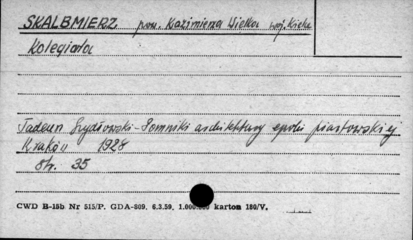 SKALBMIERZ pow. Kazimierza Wielka woj. Kielce
Kolegiata
Tadeusz Szydłowski - Pomniki architektury epoki piastowskiej
Kraków 1928
str. 35
CWD B-15b Nr 515/P. GDA-809, 6.3.59, 1.000.000 karton 180/V.